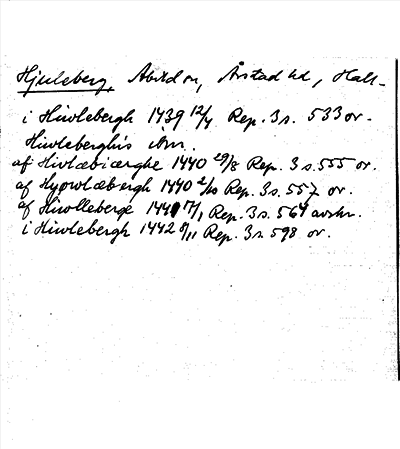 Hjuleberg, Abild sn, Årstad hd, Hall-
i Hiwlebergh 1439 12/4 Rep. 3 s. 533 or.
Hiwleberghis ibm.
af Hiwlæbiærghe 1440 29/8 Rep. 3 s. 555 or.
af Hypwlæbergh 1440 2/10 Rep. 3 s. 557 or.
af Hiwlleberge 1441 17/1 Rep. 3 s. 564 avskr.
i Hiwlebergh 1442 8/11 Rep. 3 s. 598 or.